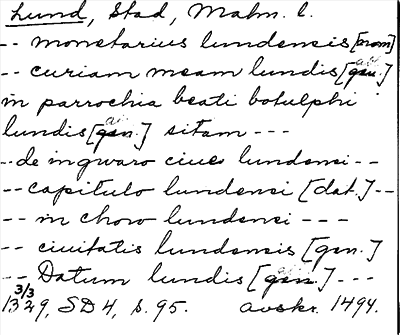 Lund, Stad, Malm. l.
-- monetarius lundensis [nom]
-- curiam meam lundis [gen.]
in parrochia beati botulphi
lundis [gen.] sitam ---
-- de ingwaro ciues lundensi --
-- capitulo lundensi [dat.] --
-- in choro lundensi ---
-- ciuitatis lundensis [gen.]
-- Datum lundis [gen.] ---
3/3
1329, SD 4, s. 95. avskr. 1494.